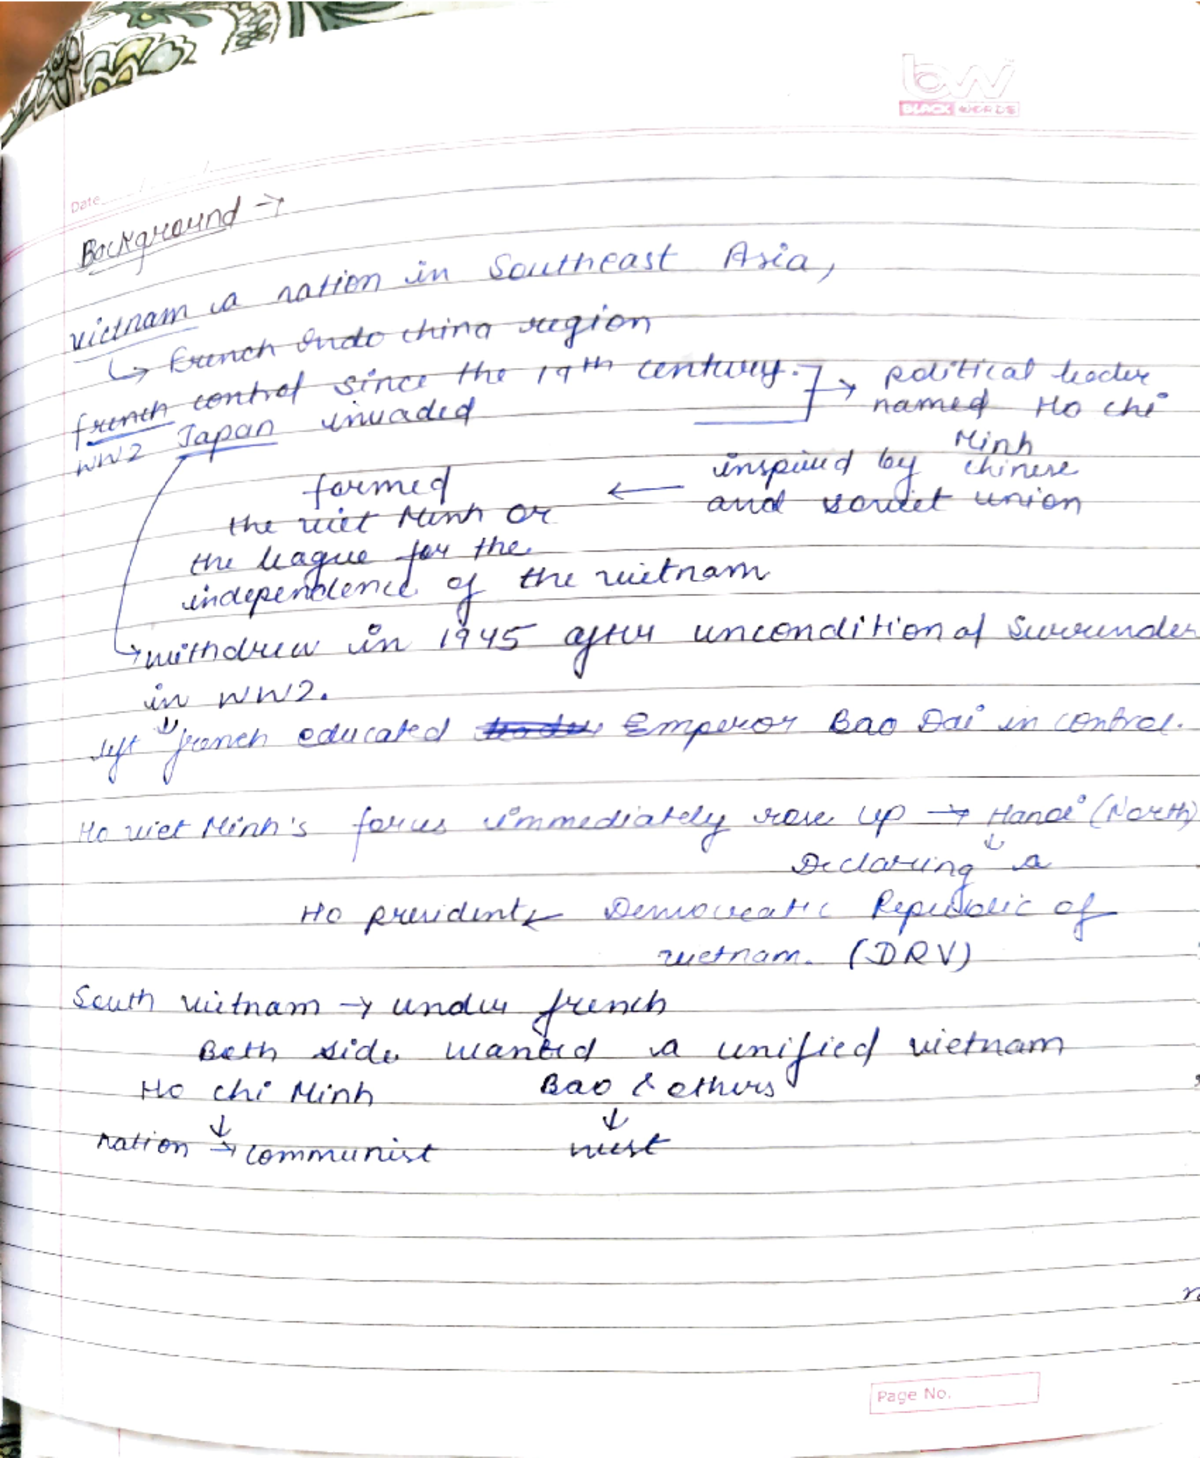 bw
BLACK WORDS
Date
Background →
Vietnam a nation in Southeast Asia,
↳ French Indo china region
french control since the 19th century.
WW2 Japan invaded
→ political leader
named Ho chi
Minh
inspired by chinese
and soviet union
←
formed
the viet Minh or
the league for the
independence of the vietnam
withdrew in 1945 after unconditional Surrender
in WW2.
left french educated Emperor Bao Dai in control.
Ho viet Minh's forces immediately rose up → Hanoi (North)
↓
Declaring a
Ho president ← Democratic Republic of
vietnam. (DRV)
South vietnam → under french
Both side wanted a unified vietnam
Ho chi Minh Bao & others
↓ ↓
nation → communist west
Page No.